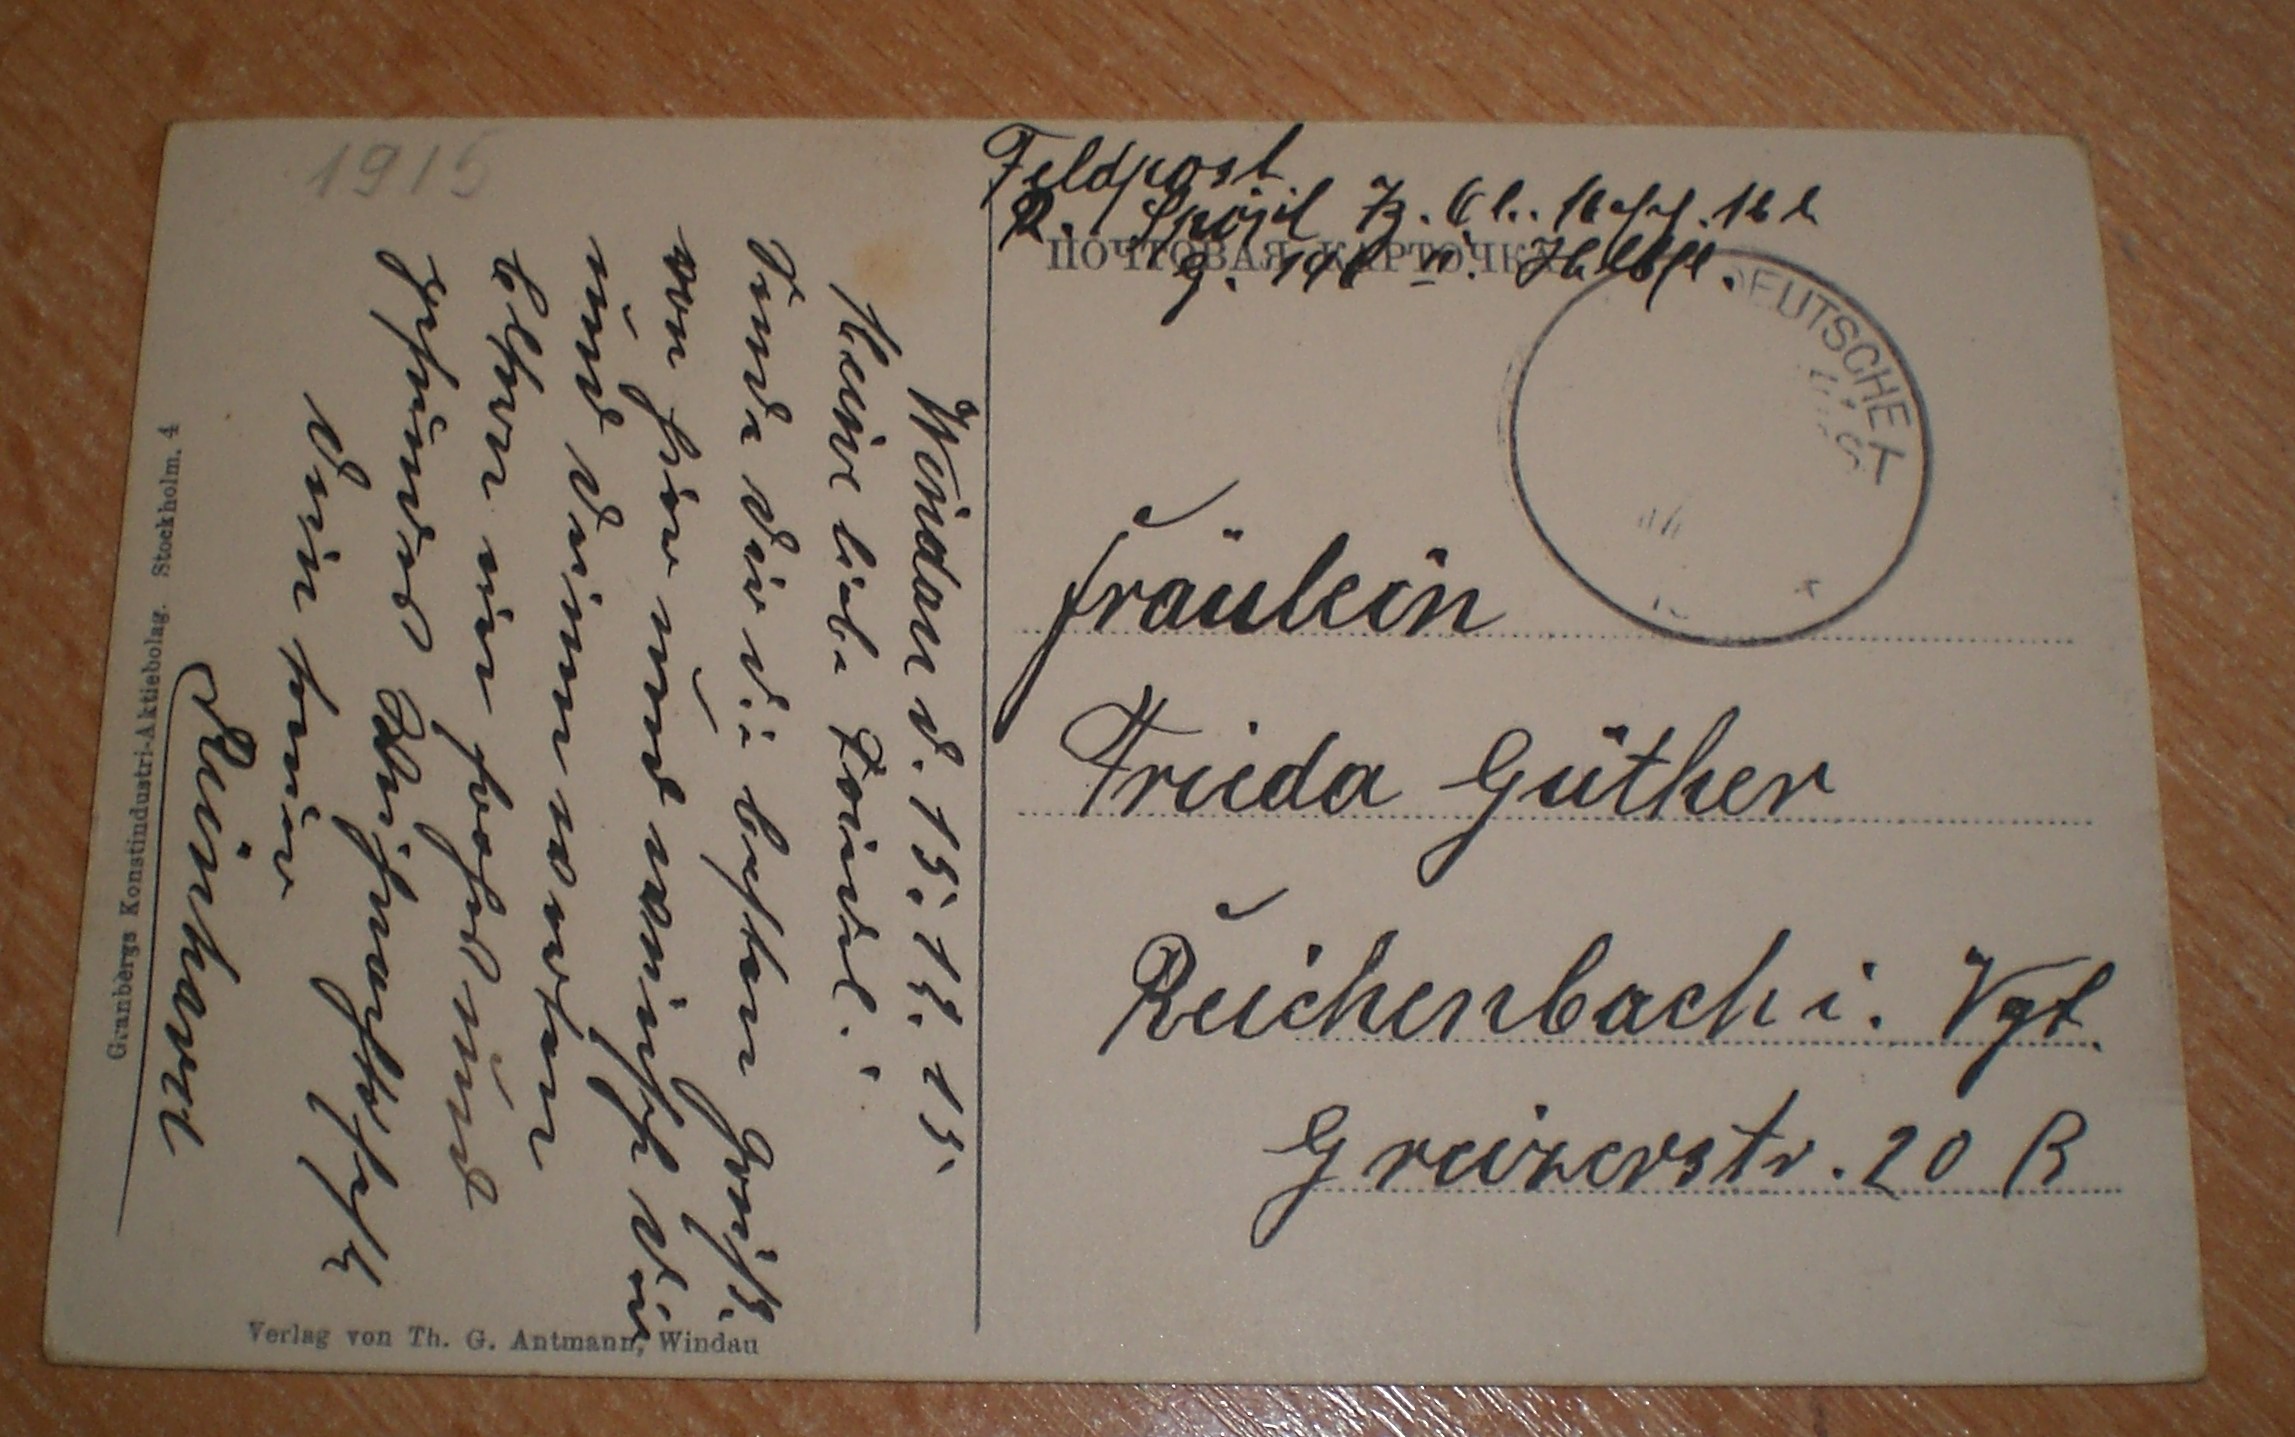 1915
Feldpost
ПОЧТОВАЯ КАРТОЧКА
DEUTSCHE
Fräulein
Frieda Güther
Reichenbach i. Vgt.
Greizerstr. 20 B
Windau d. 15. 12. 15.
Meine liebe Frieda!
Sende dir die besten Grüße
von hier und wünsche dir
und deinen werten
Eltern ein frohes und
gesundes Weihnachtsfest
dein treuer
Reinhard
Granbergs Konstindustri-Aktiebolag. Stockholm. 4
Verlag von Th. G. Antmann, Windau